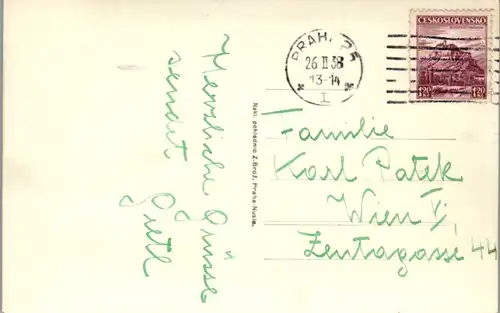 Herzliche Grüsse
sendet
Gretl
Nakl. pohlednic Z. Brož, Praha-Nusle.
PRAHA 25
26 II 38
13-14
1
ČESKOSLOVENSKO
1·20 1·20
Familie
Karl Patek
Wien V,
Zentagasse 44